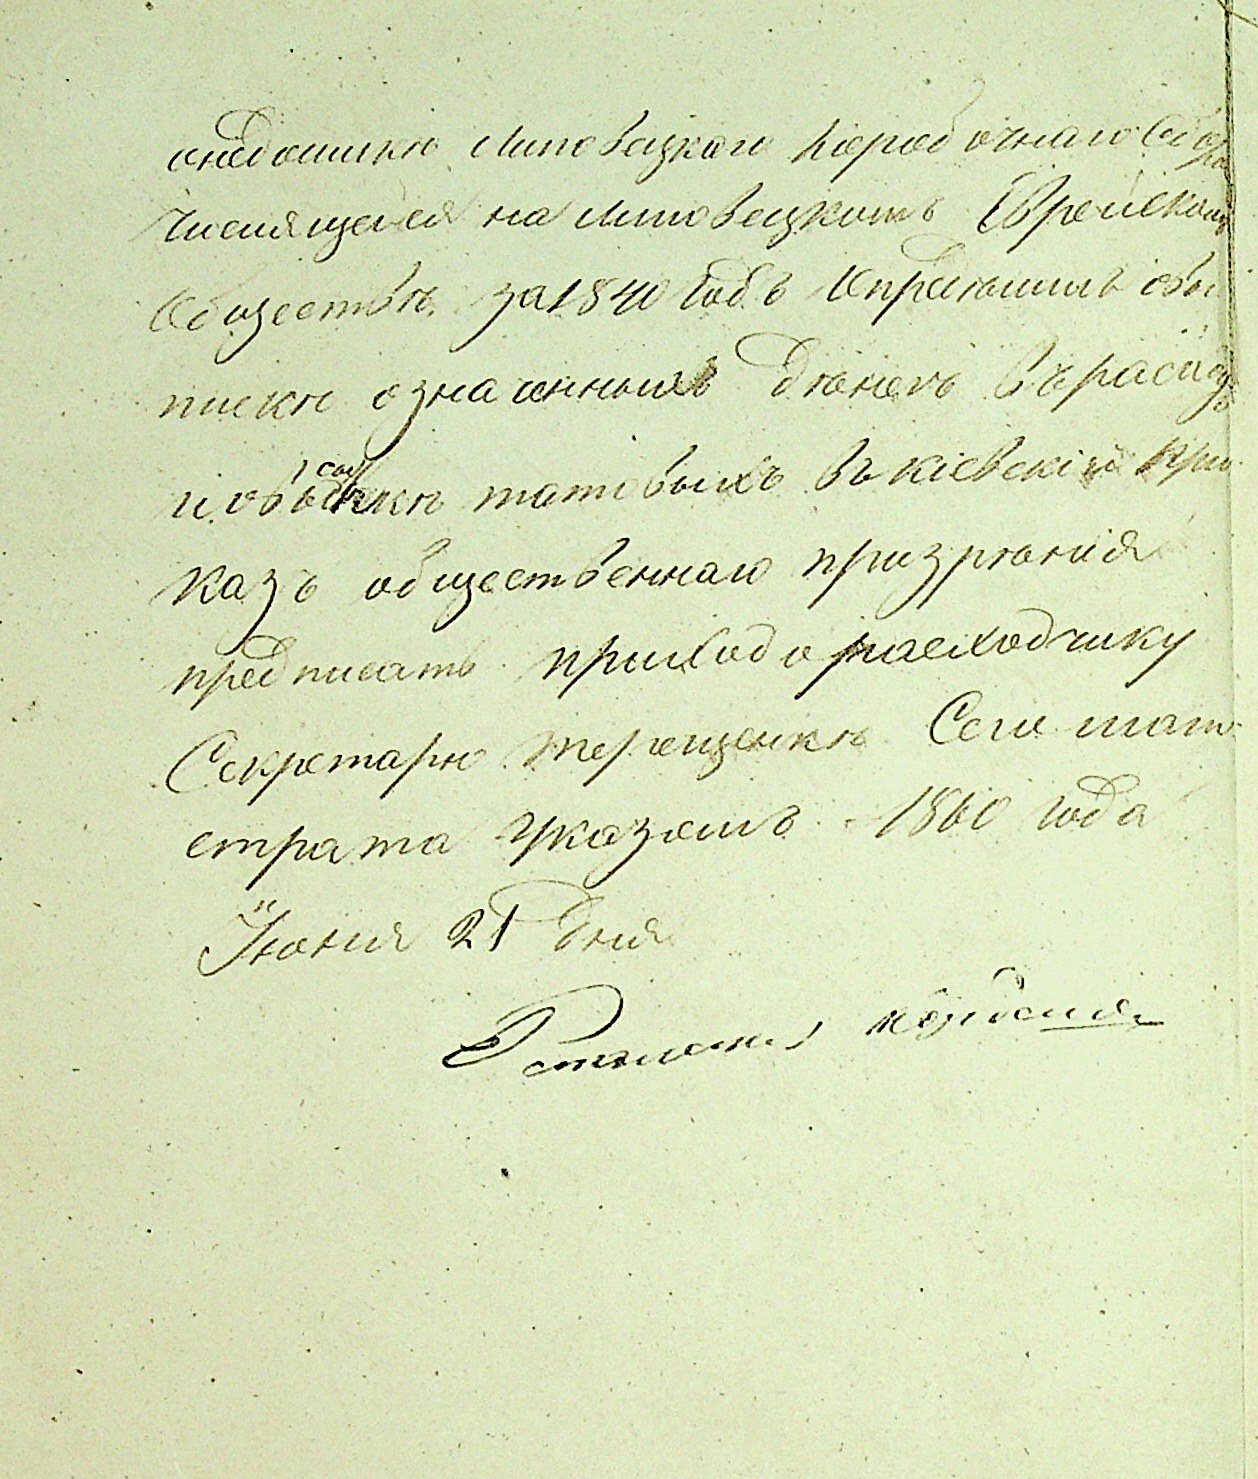 снедоимкю Липовецкаго Коробочнаго Сбора
числящейся на Липовецкомъ Еврейскомъ
Обществѣ за 1840 годъ
пискѣ означенныхъ денегъ въ расходъ
и объ высылкѣ таковыхъ въ Кіевскій При
казъ общественнаго призрѣнія
предписать приходорасходчику
Секретарю Терещенкѣ Сего маги
страта Указомъ 1860 года
Іюня 21 дня